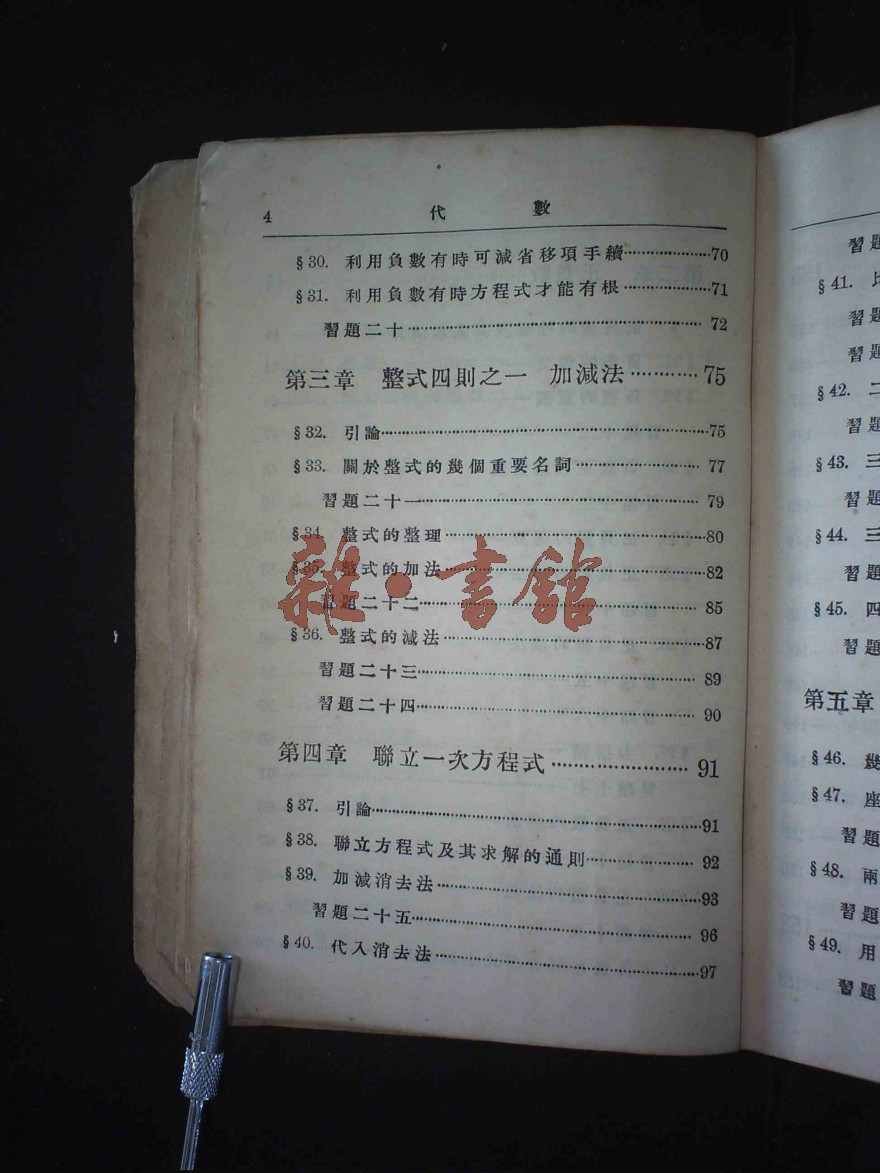 4 代 數
§30. 利用負數有時可減省移項手續…………70
§31. 利用負數有時方程式才能有根…………71
習題二十…………72
第三章 整式四則之一 加減法…………75
§32. 引論…………75
§33. 關於整式的幾個重要名詞…………77
習題二十一…………79
§34. 整式的整理…………80
§35. 整式的加法…………82
習題二十二…………85
§36. 整式的減法…………87
習題二十三…………89
習題二十四…………90
第四章 聯立一次方程式…………91
§37. 引論…………91
§38. 聯立方程式及其求解的通則…………92
§39. 加減消去法…………93
習題二十五…………96
§40. 代入消去法…………97
雜·書館
習題
§41. 比
習題
習題
§42. 二
習題
§43. 三
習題
§44. 三
習題
§45. 四
習題
第五章
§46. 幾
§47. 座
習題
§48. 兩
習題
§49. 用
習題